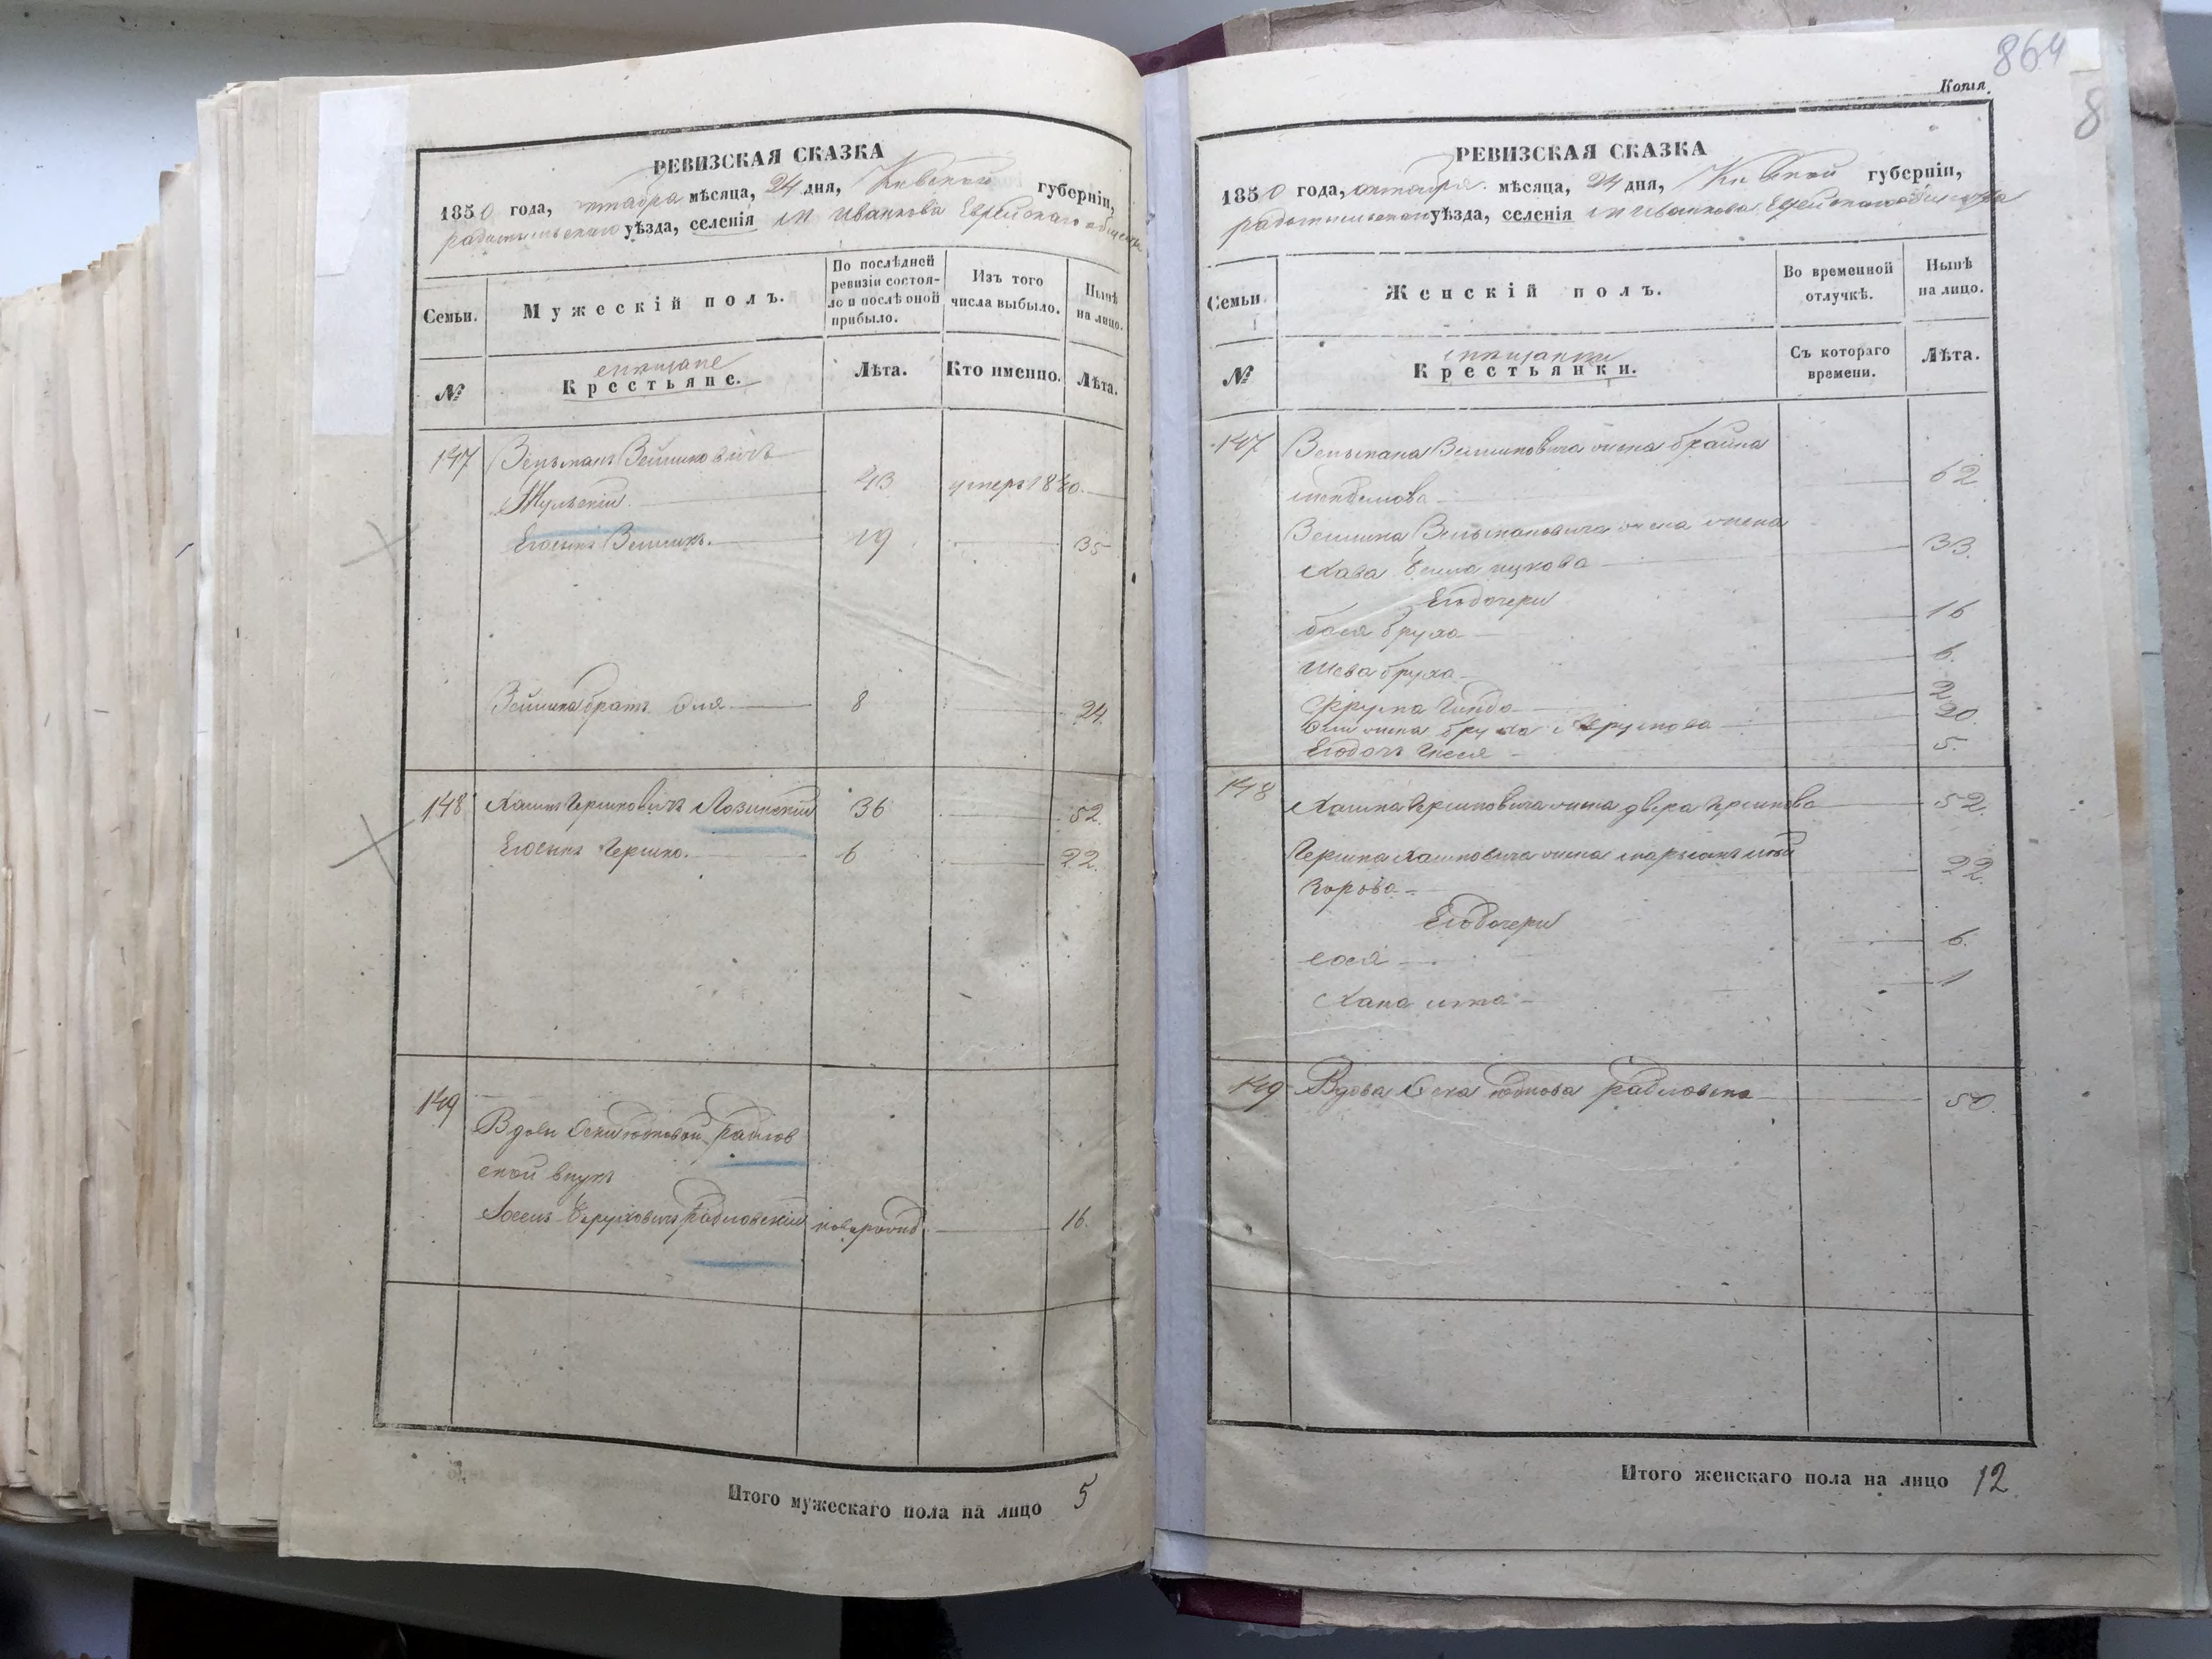 РЕВИЗСКАЯ СКАЗКА
1850 года, октабра мѣсяца, 24 дня, Киевской губерніи,
радомысльскаго уѣзда, селенія м Иванкова Еврейскаго общества
Семьи.
Мужескій полъ.
По послѣдней ревизіи состояло и послѣ оной прибыло.
Изъ того числа выбыло.
Нынѣ на лицо.
№
мещане
Крестьяне.
Лѣта.
Кто именно.
Лѣта.
147 Зельманъ Зейликовичъ
Жульскій. 43 умеръ 1840.
Егосынъ Зейликъ. 19 35
Зейлика братъ Эля 8 24
148 Хаимъ Гершковичъ Лозинский 36 52.
Егосынъ Гершко. 6 22.
149
Вдовы Юдковой Радлов
ской внукъ
Радловский новорожд 16.
Итого мужескаго пола на лицо 5
864
Копія.
8
РЕВИЗСКАЯ СКАЗКА
1850 года, октабра мѣсяца, 24 дня, Киевской губерніи,
радомысльскаго уѣзда, селенія м Иванкова Еврейскаго общества
Семьи.
Женскій полъ.
Во временной отлучкѣ.
Нынѣ на лицо.
№
мещанки
Крестьянки.
Съ котораго времени.
Лѣта.
147 Зельмана Зейликовича жена брайна
62
Зейлика Зельмановича жена
Хава Бейла ицкова 33.
Егодочери
бася бруха 16
Шева бруха 6.
Фрума Гинда 2
Эли жена бруха 20.
Егодочь 5.
148 Хаима Гершковича жена двера Гершкова 52.
Гершка Хаимовича жена
22.
Егодочери
сося 6.
Хана 1
149 Вдова Юдкова Радловска 50.
Итого женскаго пола на лицо 12